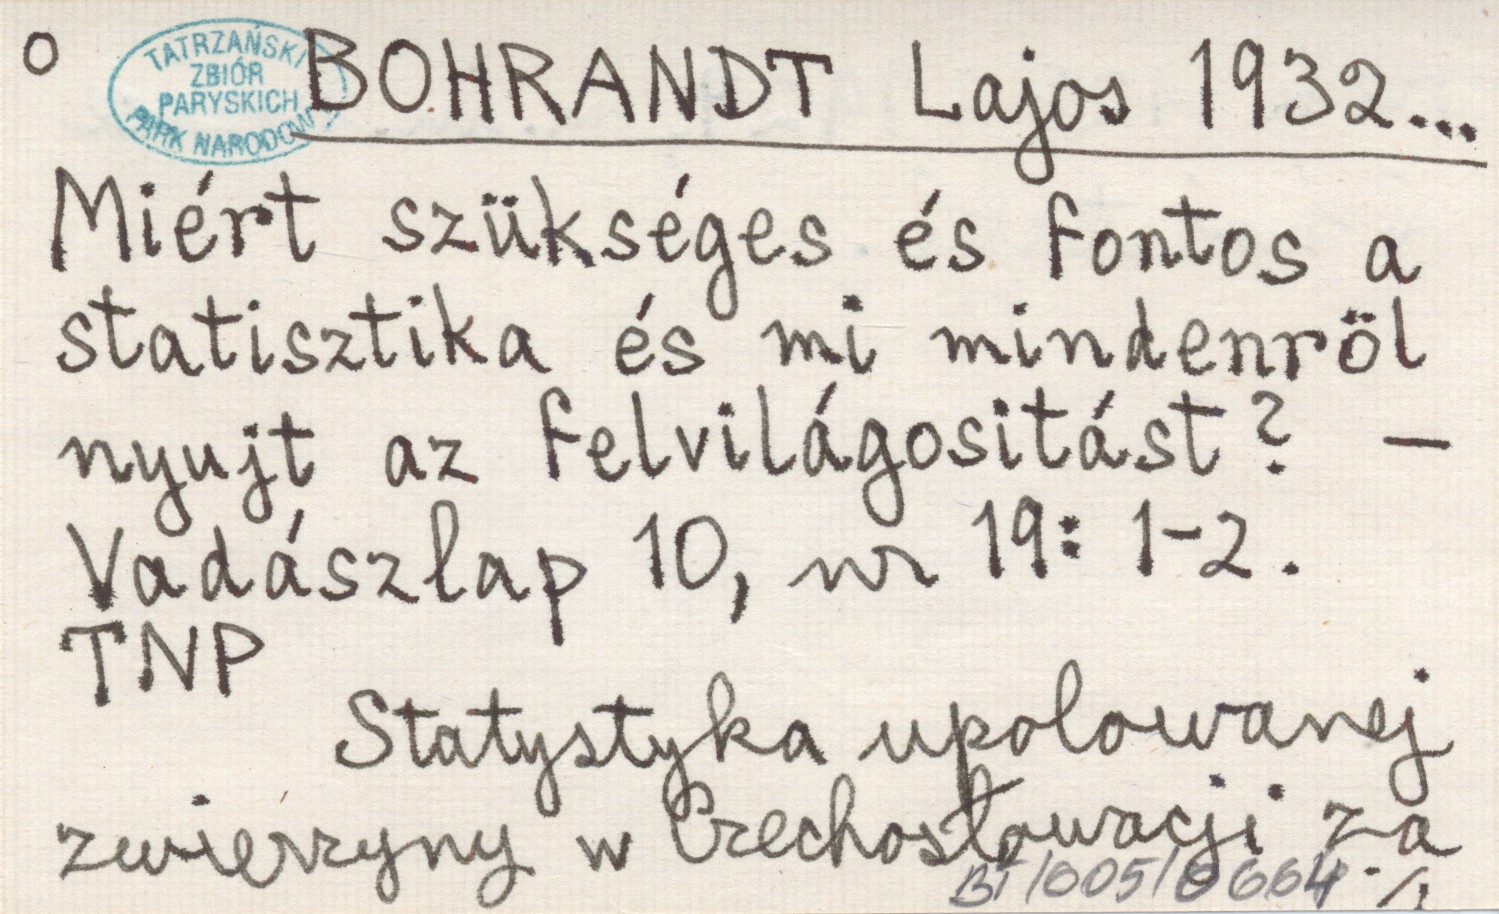 o
TATRZAŃSKI
ZBIÓR
PARYSKICH
PARK NARODOWY
BOHRANDT Lajos 1932...
Miért szükséges és fontos a
statisztika és mi mindenröl
nyujt az felvilágositást? –
Vadászlap 10, nr 19: 1-2.
TNP
Statystyka upolowanej
zwierzyny w Czechosłowacji za
BT/005/0664